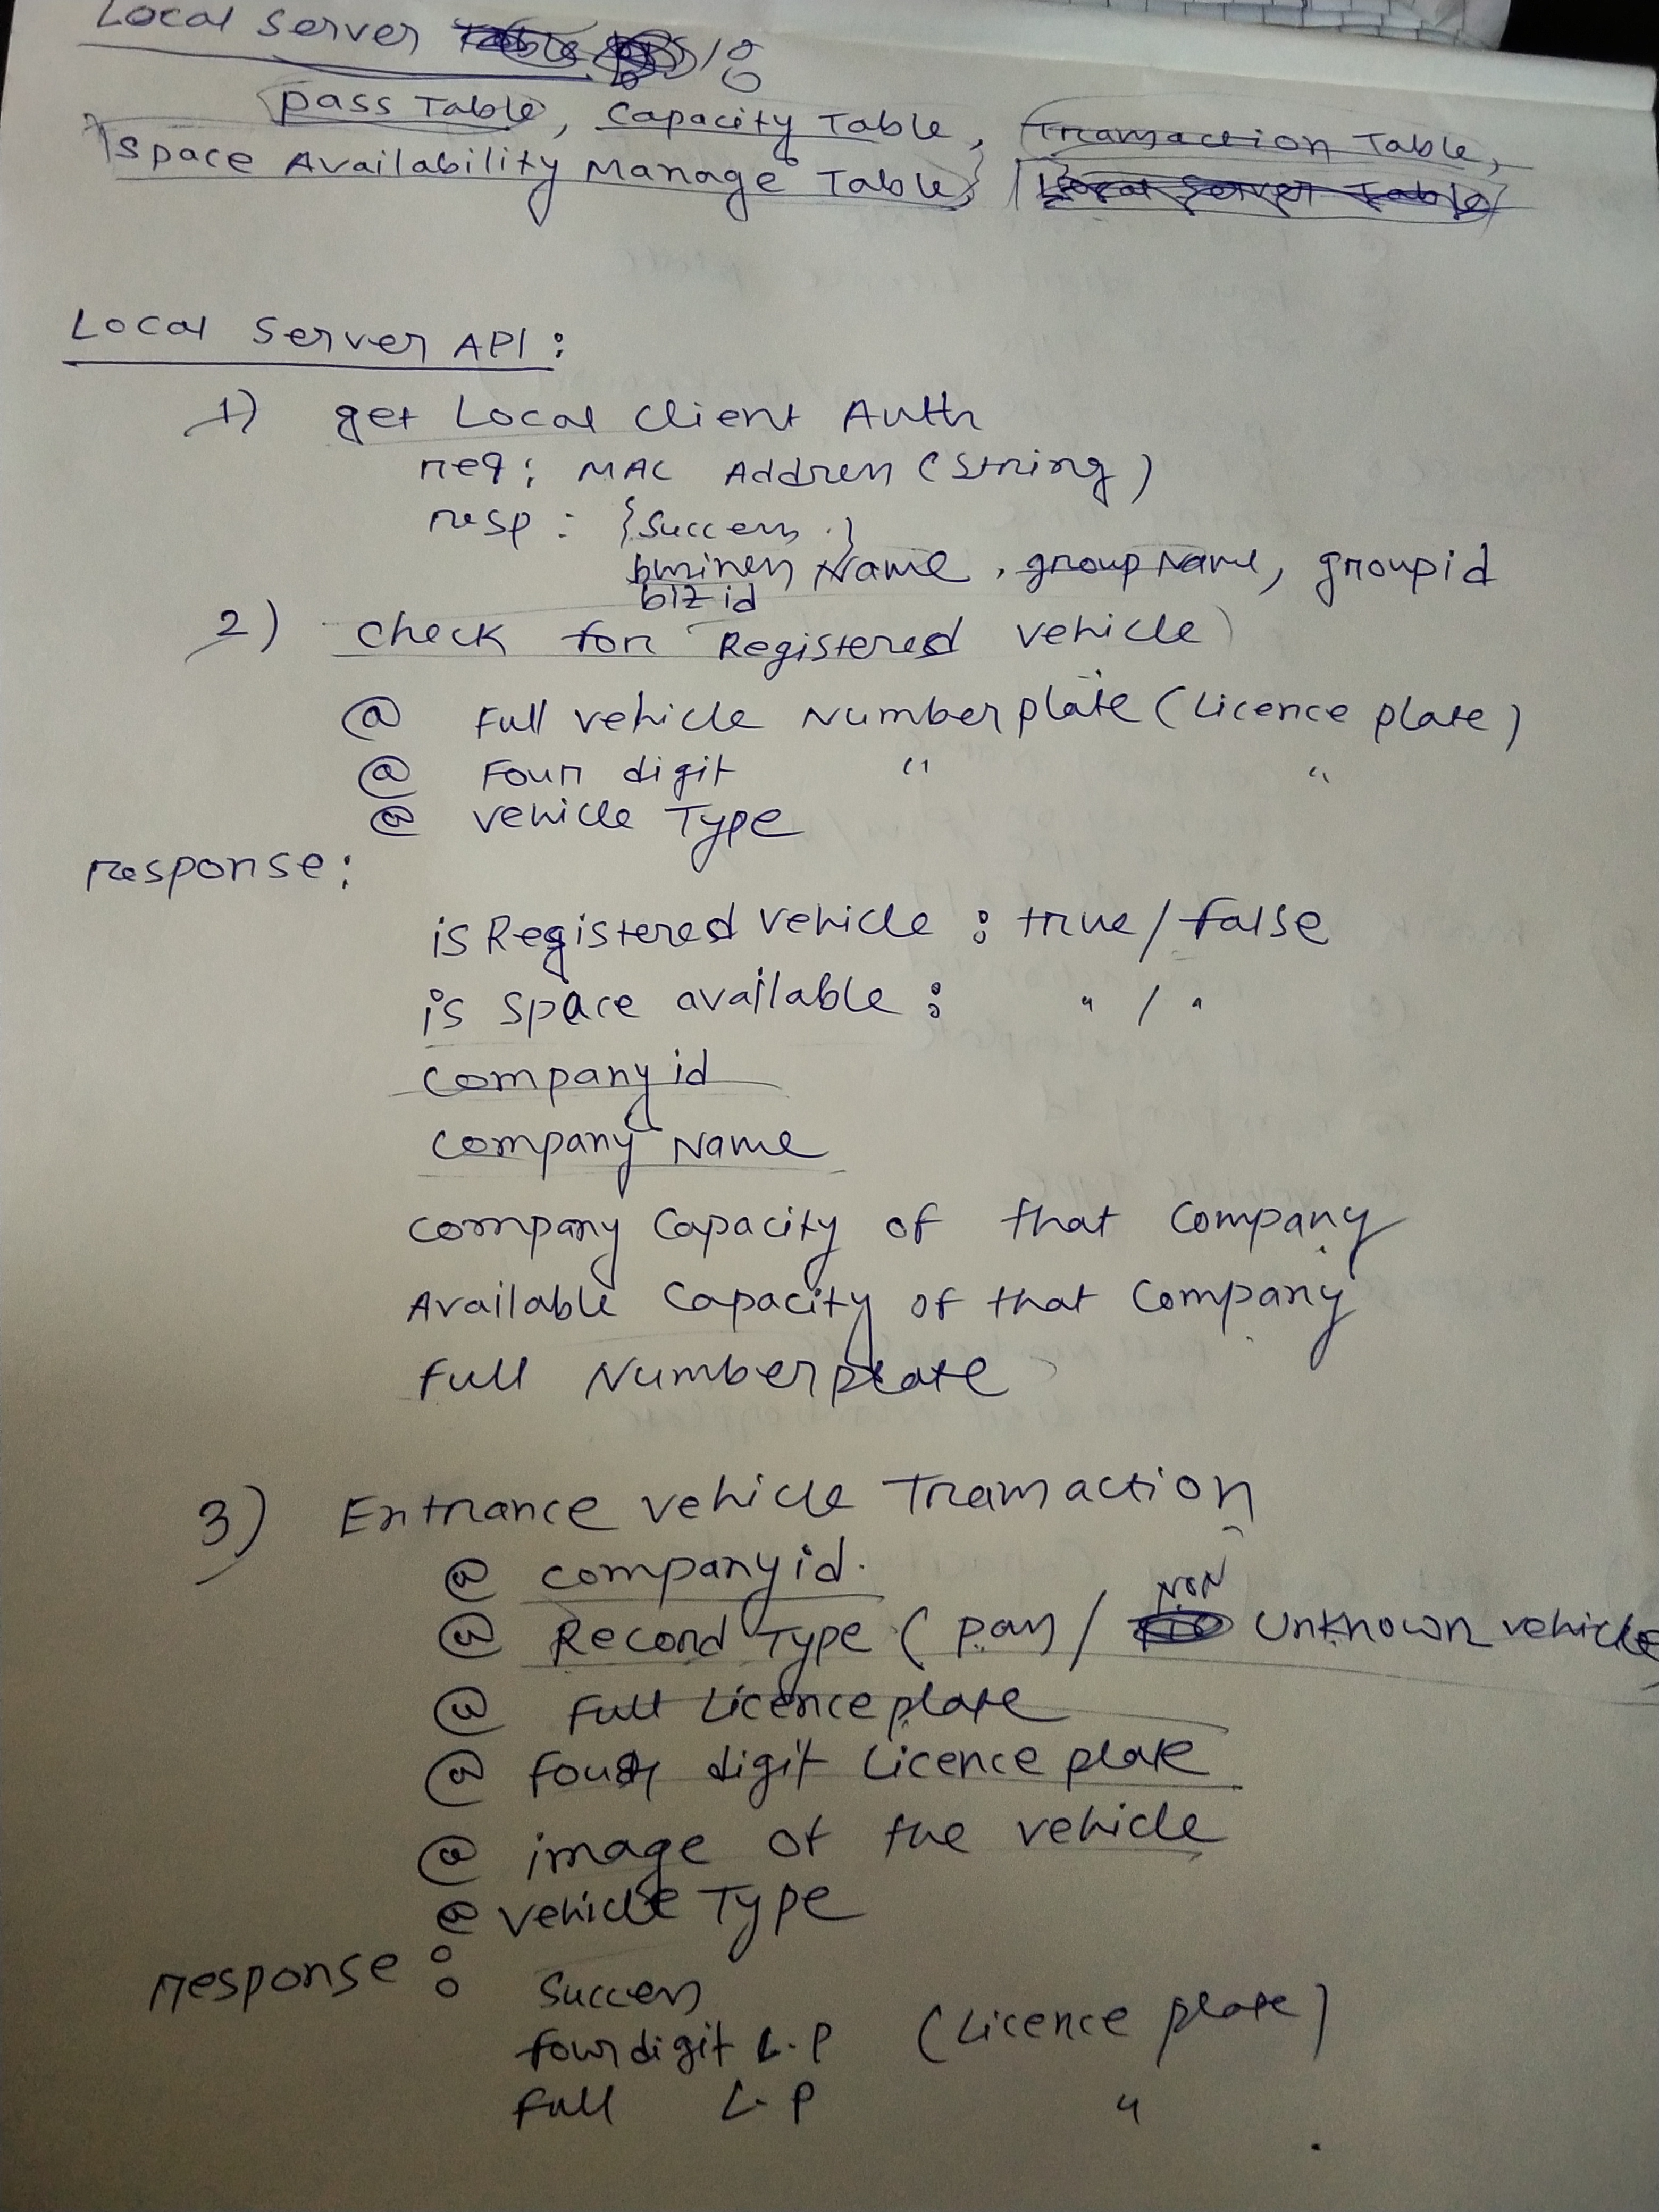 Local Server Table
Pass Table, Capacity Table, Transaction Table,
Space Availability Manage Table, Local Server Table
Local Server API :
1) get Local Client Auth
req : MAC Address (String)
resp : {Success }
business Name, groupName, groupid
biz id
2) Check for Registered vehicle
@ Full vehicle Numberplate (Licence plate)
@ Four digit " "
@ vehicle Type
response :
is Registered vehicle : true / false
is space available : " / "
Company id
Company Name
Company Capacity of that Company
Available Capacity of that Company
full Numberplate
3) Entrance vehicle Transaction
@ companyid.
NON
@ Record Type ( pass / Unknown vehicle
@ Full Licence plate
@ four digit Licence plate
@ image of the vehicle
@ vehicle Type
response :
Success
four digit L.P (Licence plate)
full L.P "